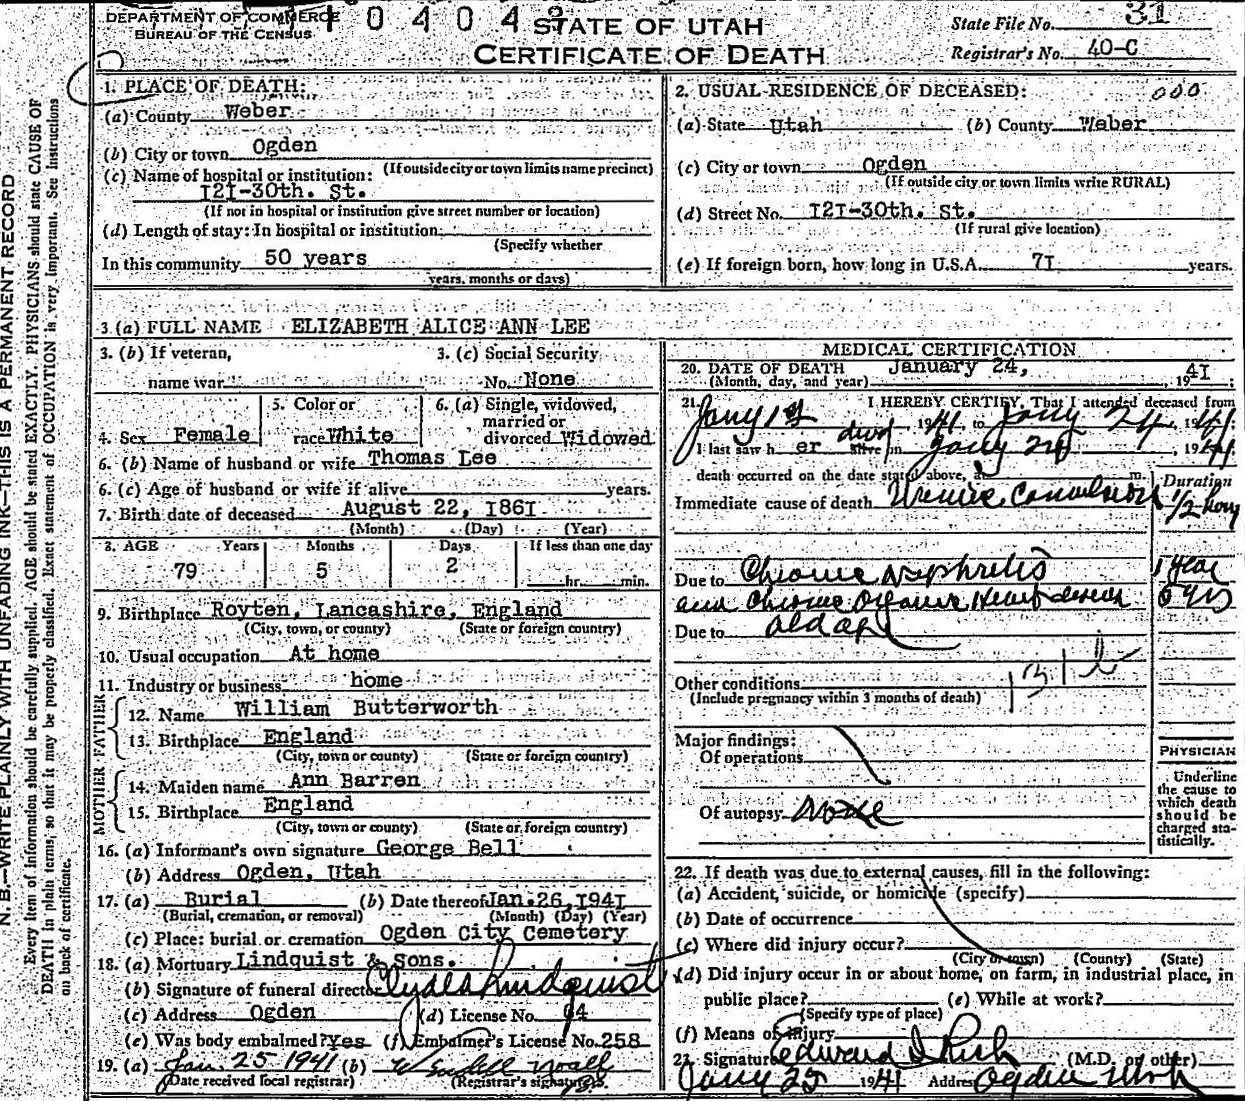 DEPARTMENT OF COMMERCE
BUREAU OF THE CENSUS
STATE OF UTAH
CERTIFICATE OF DEATH
State File No. 31
Registrar's No. 40-C
N. B.—WRITE PLAINLY WITH UNFADING INK—THIS IS A PERMANENT RECORD
Every item of information should be carefully supplied. AGE should be stated EXACTLY. PHYSICIANS should state CAUSE OF
DEATH in plain terms, so that it may be properly classified. Exact statement of OCCUPATION is very important. See instructions
on back of certificate.
1. PLACE OF DEATH:
(a) County Weber
(b) City or town Ogden
(If outside city or town limits name precinct)
(c) Name of hospital or institution:
I2I-30th. St.
(If not in hospital or institution give street number or location)
(d) Length of stay: In hospital or institution
(Specify whether
In this community 50 years
years, months or days)
2. USUAL RESIDENCE OF DECEASED: 000
(a) State Utah (b) County Weber
(c) City or town Ogden
(If outside city or town limits write RURAL)
(d) Street No. I2I-30th. St.
(If rural give location)
(e) If foreign born, how long in U.S.A. 7I years.
3. (a) FULL NAME ELIZABETH ALICE ANN LEE
3. (b) If veteran,
name war
3. (c) Social Security
No. None
4. Sex Female
5. Color or
race White
6. (a) Single, widowed,
married or
divorced Widowed
6. (b) Name of husband or wife Thomas Lee
6. (c) Age of husband or wife if alive years.
7. Birth date of deceased August 22, I86I
(Month) (Day) (Year)
8. AGE Years Months Days If less than one day
79 5 2 hr. min.
9. Birthplace Royten, Lancashire, England
(City, town, or county) (State or foreign country)
10. Usual occupation At home
11. Industry or business home
FATHER
12. Name William Butterworth
13. Birthplace England
(City, town or county) (State or foreign country)
MOTHER
14. Maiden name Ann Barren
15. Birthplace England
(City, town or county) (State or foreign country)
16. (a) Informant's own signature George Bell
(b) Address Ogden, Utah
17. (a) Burial (b) Date thereof Jan.26,I94I
(Burial, cremation, or removal) (Month) (Day) (Year)
(c) Place: burial or cremation Ogden City Cemetery
18. (a) Mortuary Lindquist & Sons.
(b) Signature of funeral director Clyde Lindquist
(c) Address Ogden (d) License No. 64
(e) Was body embalmed? Yes (f) Embalmer's License No. 258
19. (a) Jan. 25 1941 (b)
(Date received local registrar) (Registrar's signature)
MEDICAL CERTIFICATION
20. DATE OF DEATH January 24, , 194I
(Month, day, and year)
21. I HEREBY CERTIFY, That I attended deceased from
Jany 1st, 1941, to Jany 24, 1941;
I last saw her alive on Jany 24, 1941
death occurred on the date stated above, at m.
Duration
Immediate cause of death Uremic Convulsions 1/2 hour
Due to Chronic Nephritis 1 year
and Chronic Organic Heart disease 6 yrs
Due to old age
Other conditions
(Include pregnancy within 3 months of death)
Major findings:
Of operations
Of autopsy None
PHYSICIAN
Underline
the cause to
which death
should be
charged sta-
tistically.
22. If death was due to external causes, fill in the following:
(a) Accident, suicide, or homicide (specify)
(b) Date of occurrence
(c) Where did injury occur?
(City or town) (County) (State)
(d) Did injury occur in or about home, on farm, in industrial place, in
public place? (e) While at work?
(Specify type of place)
(f) Means of injury
23. Signature Edward I Rich (M.D. or other)
Jany 25 1941 Address Ogden Utah